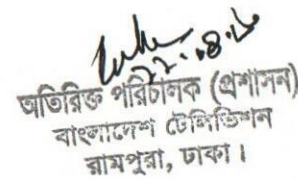 অতিরিক্ত পরিচালক (প্রশাসন)
বাংলাদেশ টেলিভিশন
রামপুরা, ঢাকা।